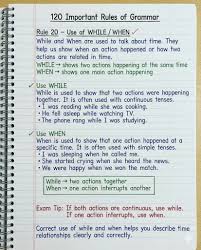 120 Important Rules of Grammar
Rule 20 – Use of WHILE / WHEN ✓
While and When are used to talk about time. They
help us show when an action happened or how two
actions are related in time.
WHILE → shows two actions happening at the same time
WHEN → shows one main action happening
✓ Use WHILE
While is used to show that two actions were happening
together. It is often used with continuous tenses.
• I was reading while she was cooking.
• He fell asleep while watching TV.
• The phone rang while I was studying.
✓ Use WHEN
When is used to show that one action happened at a
specific time. It is often used with simple tenses.
• I was sleeping when he called me.
• She started crying when she heard the news.
• We were happy when we won the match.
While → two actions together
When → one action interrupts another
Exam Tip: If both actions are continuous, use while.
If one action interrupts, use when.
Correct use of while and when helps you describe time
relationships clearly and correctly.